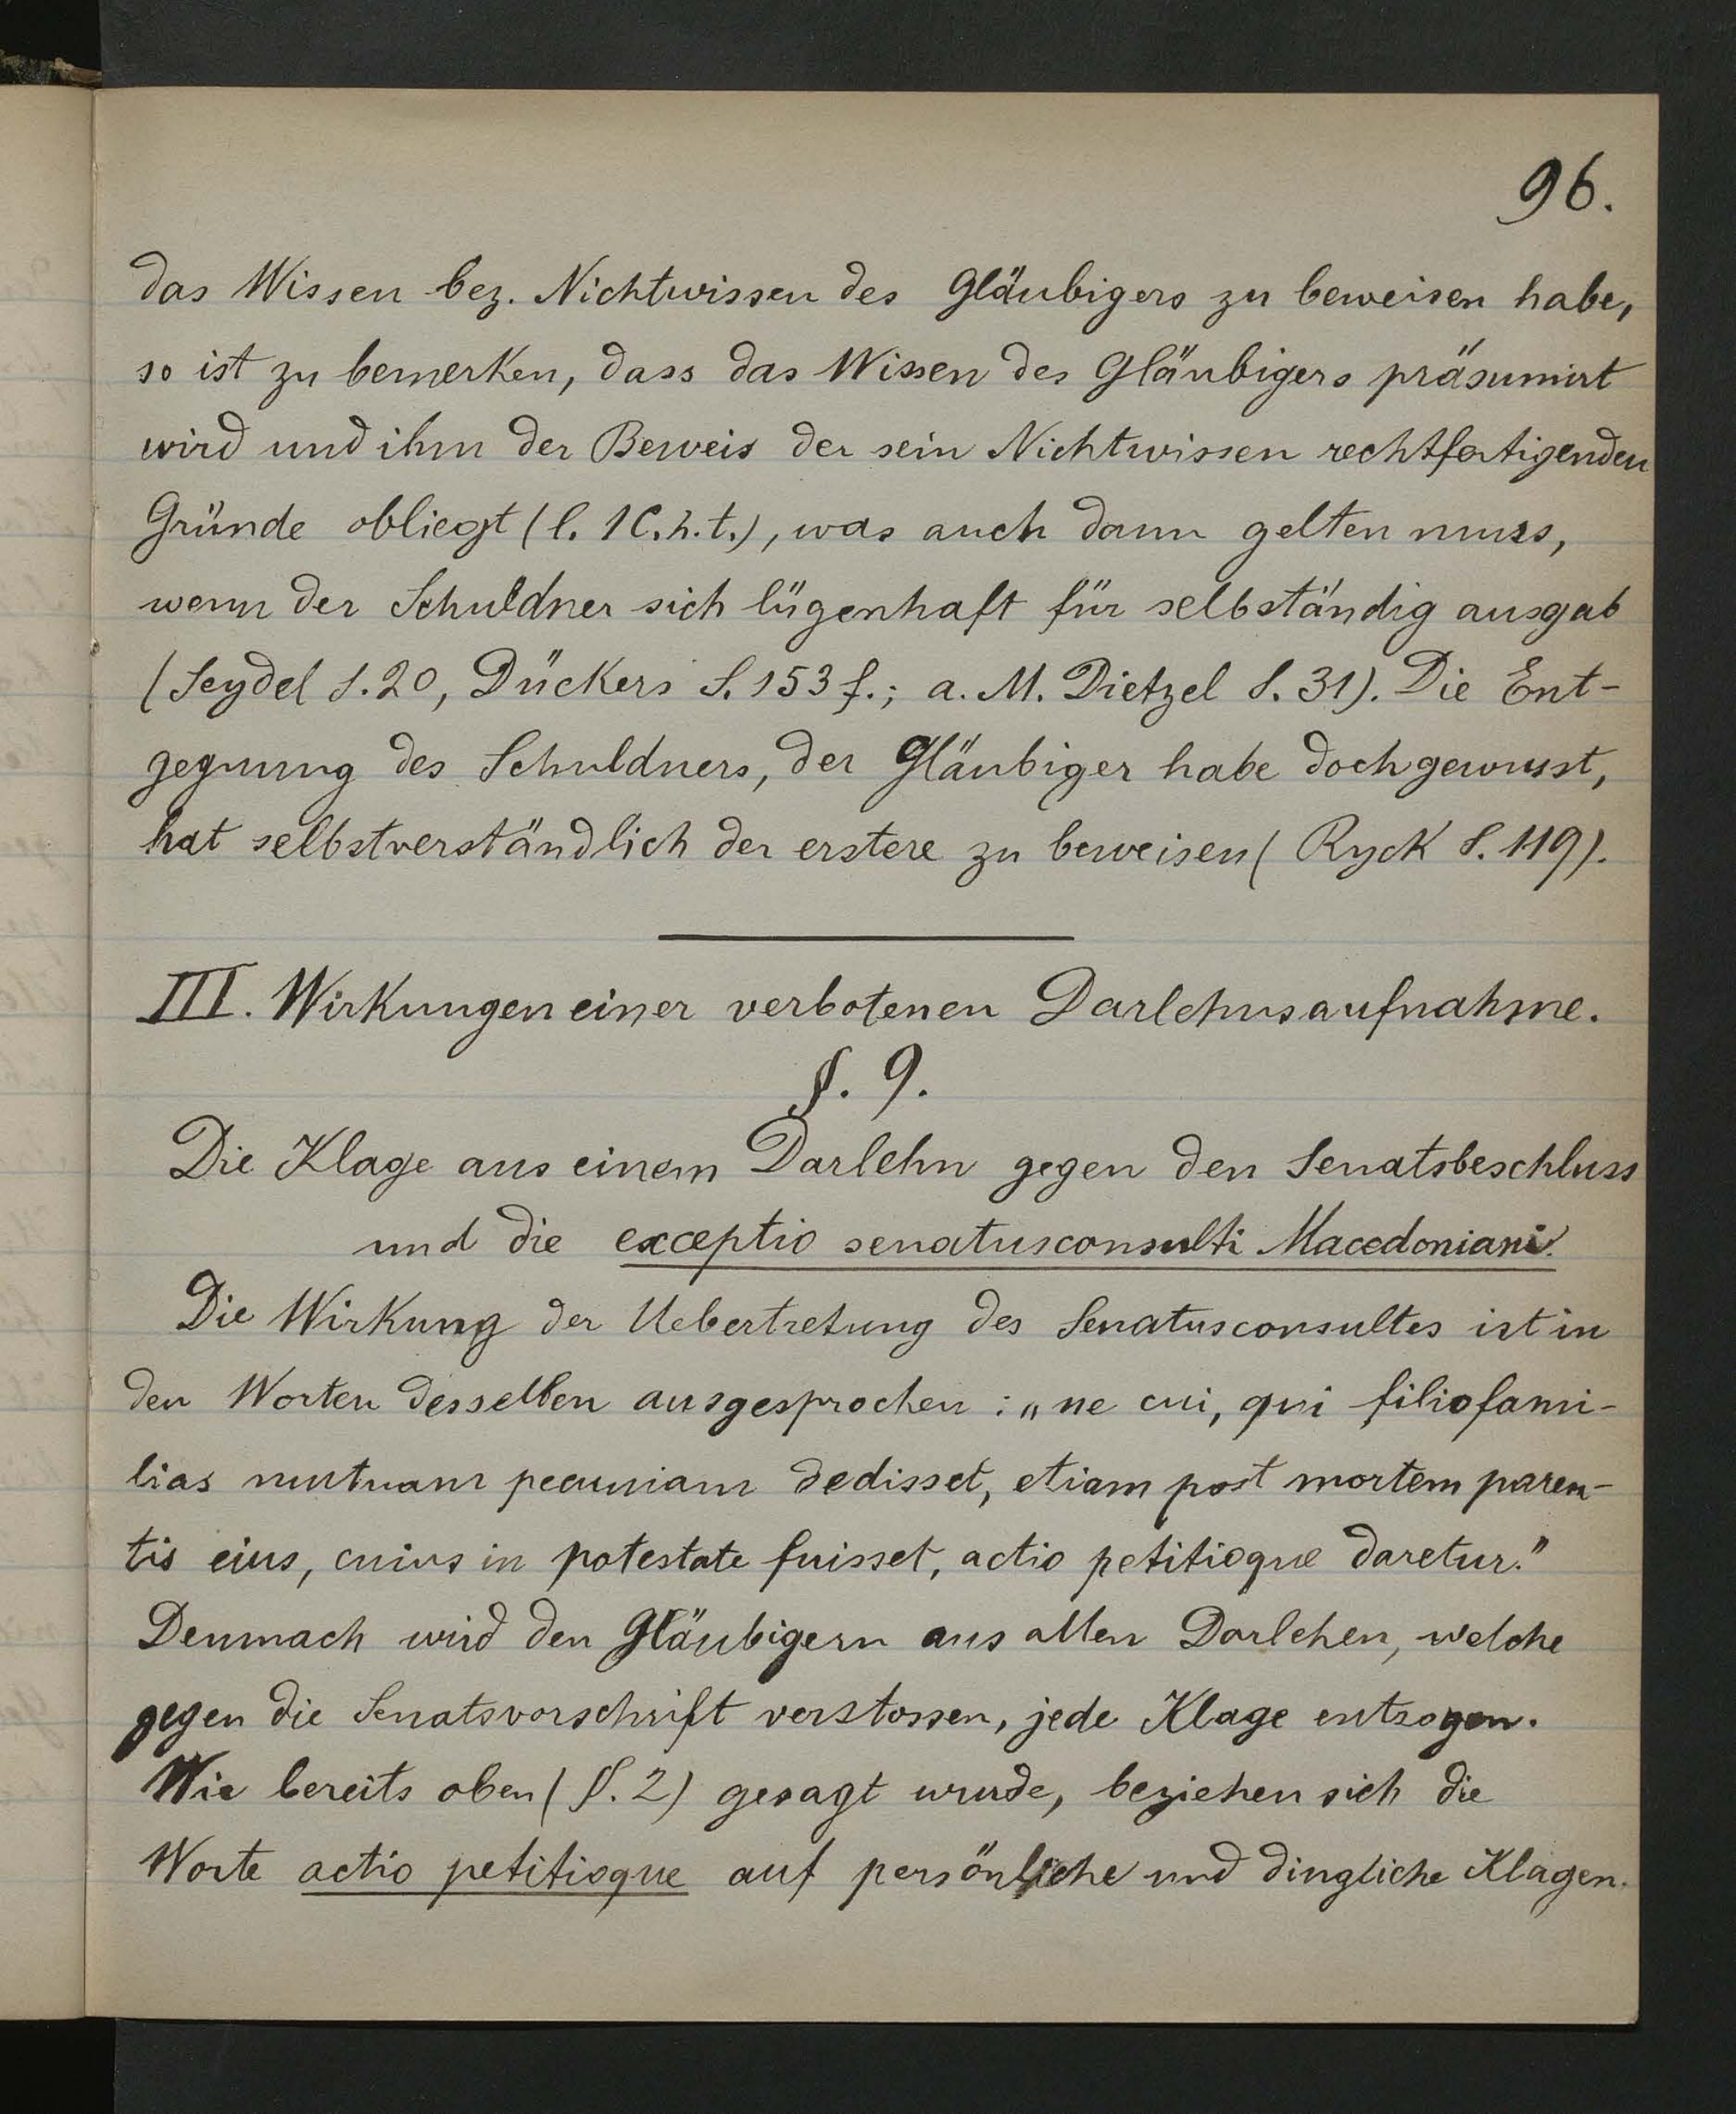 96.
das Wissen bez. Nichtwissen des Gläubigers zu beweisen habe,
so ist zu bemerken, dass das Wissen des Gläubigers präsumirt
wird und ihm der Beweis der sein Nichtwissen rechtfertigenden
Gründe obliegt (l. 1 C. h. t.), was auch dann gelten muss,
wenn der Schuldner sich lügenhaft für selbständig ausgab
(Seydel S. 20, Dückers S. 153 f.; a. M. Dietzel S. 31). Die Ent-
gegnung des Schuldners, der Gläubiger habe doch gewusst,
hat selbstverständlich der erstere zu beweisen (Ryck S. 119).
III. Wirkungen einer verbotenen Darlehnsaufnahme.
§. 9.
Die Klage aus einem Darlehn gegen den Senatsbeschluss
und die exceptio senatusconsulti Macedoniani.
Die Wirkung der Uebertretung des Senatusconsultes ist in
den Worten desselben ausgesprochen: „ne cui, qui filiofami-
lias mutuam pecuniam dedisset, etiam post mortem paren-
tis eius, cuius in potestate fuisset, actio petitioque daretur."
Demnach wird den Gläubigern aus allen Darlehen, welche
gegen die Senatsvorschrift verstossen, jede Klage entzogen.
Wie bereits oben (§. 2) gesagt wurde, beziehen sich die
Worte actio petitioque auf persönliche und dingliche Klagen.